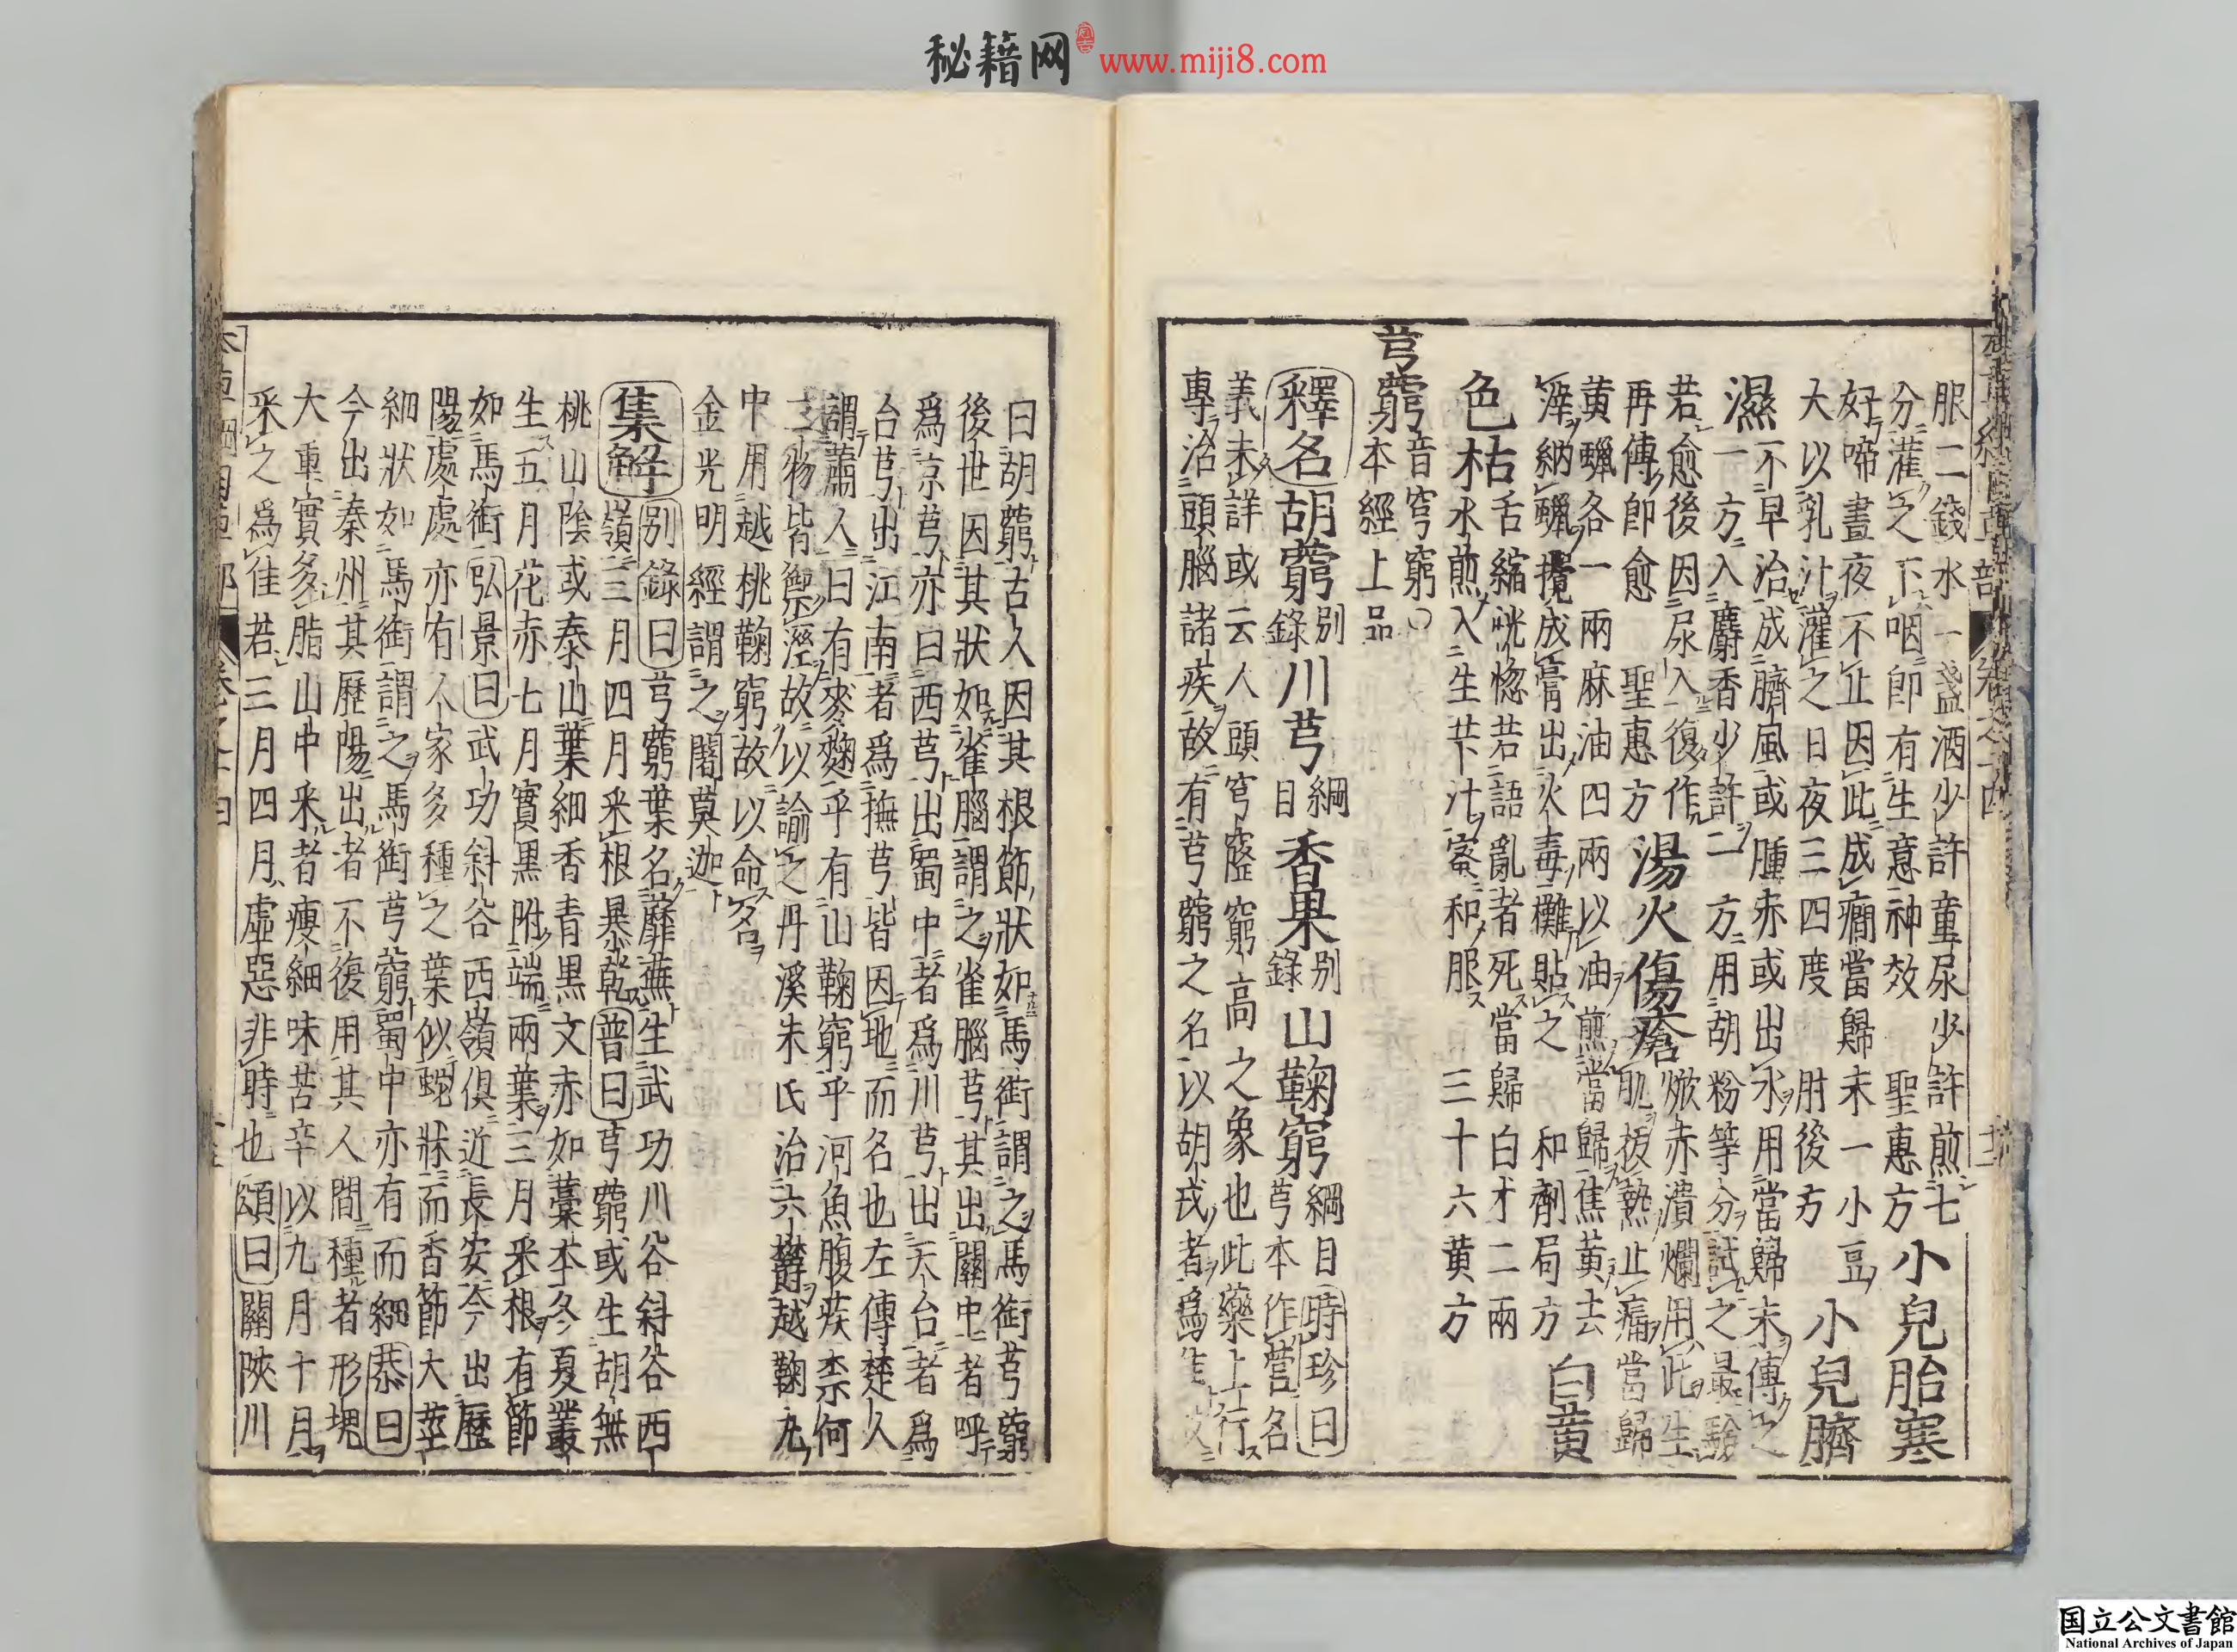 秘籍网 www.miji8.com
服二錢水一盞酒少許童尿少許煎七
分灌之下咽即有生意神效 聖惠方 小兒胎寒
好啼晝夜不止因此成癎當歸末一小豆
大以乳汁灌之日夜三四度 肘後方 小兒臍
濕不早治成臍風或腫赤或出水用當歸末傅之
一方入麝香少許二方用胡粉等分試之最驗
若愈後因尿入復作
再傅即愈 聖惠方 湯火傷瘡 焮赤潰爛用此生
肌拔熱止痛當歸
黄蠟各一兩麻油四兩以油煎當歸焦黄去
滓納蠟攪成膏出火毒攤貼之 和劑局方 白黄
色枯舌縮恍惚若語亂者死當歸白朮二兩
水煎入生苄汁蜜和服 三十六黄方
芎藭音穹窮○
本經上品
釋名胡藭别錄川芎綱目香果别錄山鞠窮綱目時珍曰
芎本作营名
義未詳或云人頭穹窿窮高之象也此藥上行
專治頭腦諸疾故有芎藭之名以胡戎者爲佳
曰胡藭古人因其根節狀如馬銜謂之馬銜芎藭
後世因其狀如雀腦謂之雀腦芎其出關中者呼
爲京芎亦曰西芎出蜀中者爲川芎出天台者爲
台芎出江南者爲撫芎皆因地而名也左傳楚人
謂蕭人曰有麥麴乎有山鞠窮乎河魚腹疾柰何
二物皆禦溼故以諭之丹溪朱氏治六鬱越鞠丸
中用越桃鞠窮故以命名
金光明經謂之闍莫迦
集解别錄曰芎藭葉名蘼蕪生武功川谷斜谷西
嶺三月四月采根暴乾普曰芎藭或生胡無
桃山陰或泰山葉細香青黒文赤如藁本冬夏叢
生五月花赤七月實黒附端兩葉三月采根有節
如馬銜弘景曰武功斜谷西嶺俱近長安今出歷
陽處處亦有人家多種之葉似蛇牀而香節大莖
細狀如馬銜謂之馬銜芎藭蜀中亦有而細恭曰
今出秦州其歷陽出者不復用其人間種者形塊
大重實多脂山中采者瘦細味苦辛以九月十月
采之爲佳若三月四月虛惡非時也頌曰關陝川
国立公文書館
National Archives of Japan